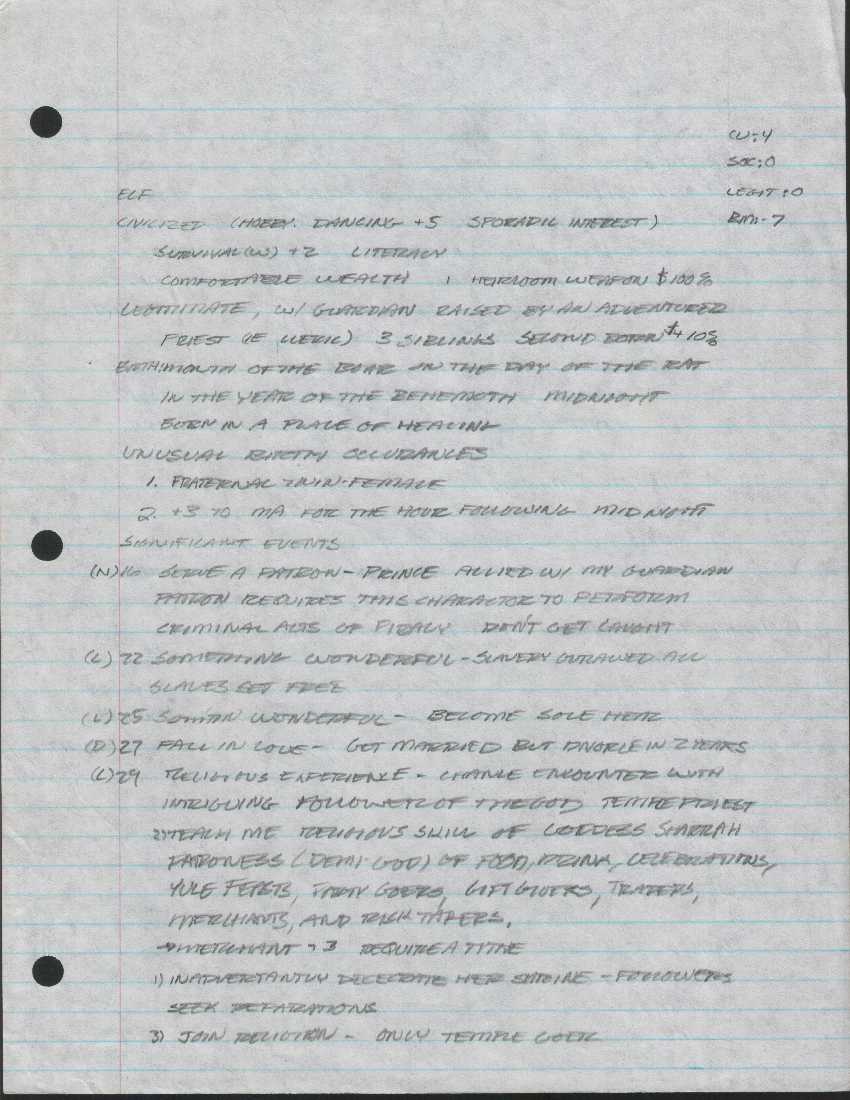 CU:4
SOC:0
ELF
LEGIT:0
CIVILIZED (HOBBY: DANCING +5 SPORADIC INTEREST)
BMI-7
SURVIVAL(W) +2 LITERACY
COMFORTABLE WEALTH 1 HEIRLOOM WEAPON $100%
LEGITIMATE, W/ GUARDIAN RAISED BY AN ADVENTURER
PRIEST (IE CLERIC) 3 SIBLINGS SECOND BORN $+10%
BIRTH: MONTH OF THE BOAR ON THE DAY OF THE RAT
IN THE YEAR OF THE BEHEMOTH MIDNIGHT
BORN IN A PLACE OF HEALING
UNUSUAL BIRTH OCCURANCES
1. FRATERNAL TWIN-FEMALE
2. +3 TO MA FOR THE HOUR FOLLOWING MIDNIGHT
SIGNIFICANT EVENTS
(N)16 SERVE A PATRON - PRINCE ALLIED W/ MY GUARDIAN
PATRON REQUIRES THIS CHARACTOR TO PERFORM
CRIMINAL ACTS OF PIRACY DON'T GET CAUGHT
(L) 22 SOMETHING WONDERFUL - SLAVERY OUTLAWED ALL
SLAVES GET FREE
(L) 25 WONDERFUL - BECOME SOLE HEIR
(D) 27 FALL IN LOVE - GET MARRIED BUT DIVORCE IN 2 YEARS
(L) 29 RELIGIOUS EXPERIENCE - CHANCE ENCOUNTER WITH
INTRIGUING FOLLOWER OF THE GOD TEMPLE PRIEST
2) TEACH ME RELIGIOUS SKILL OF GODDESS SHARRAH
PATRONESS (DEMI-GOD) OF FOOD, DRINK, CELEBRATIONS,
YULE FEASTS, PARTY GOERS, GIFT GIVERS, TRADERS,
MERCHANTS, AND RISK TAKERS.
→ MERCHANT +3 REQUIRE A TITHE
1) INADVERTANTLY DECECRATE HER SHRINE - FOLLOWERS
SEEK REPARATIONS
3) JOIN RELIGION - ONLY TEMPLE GOER